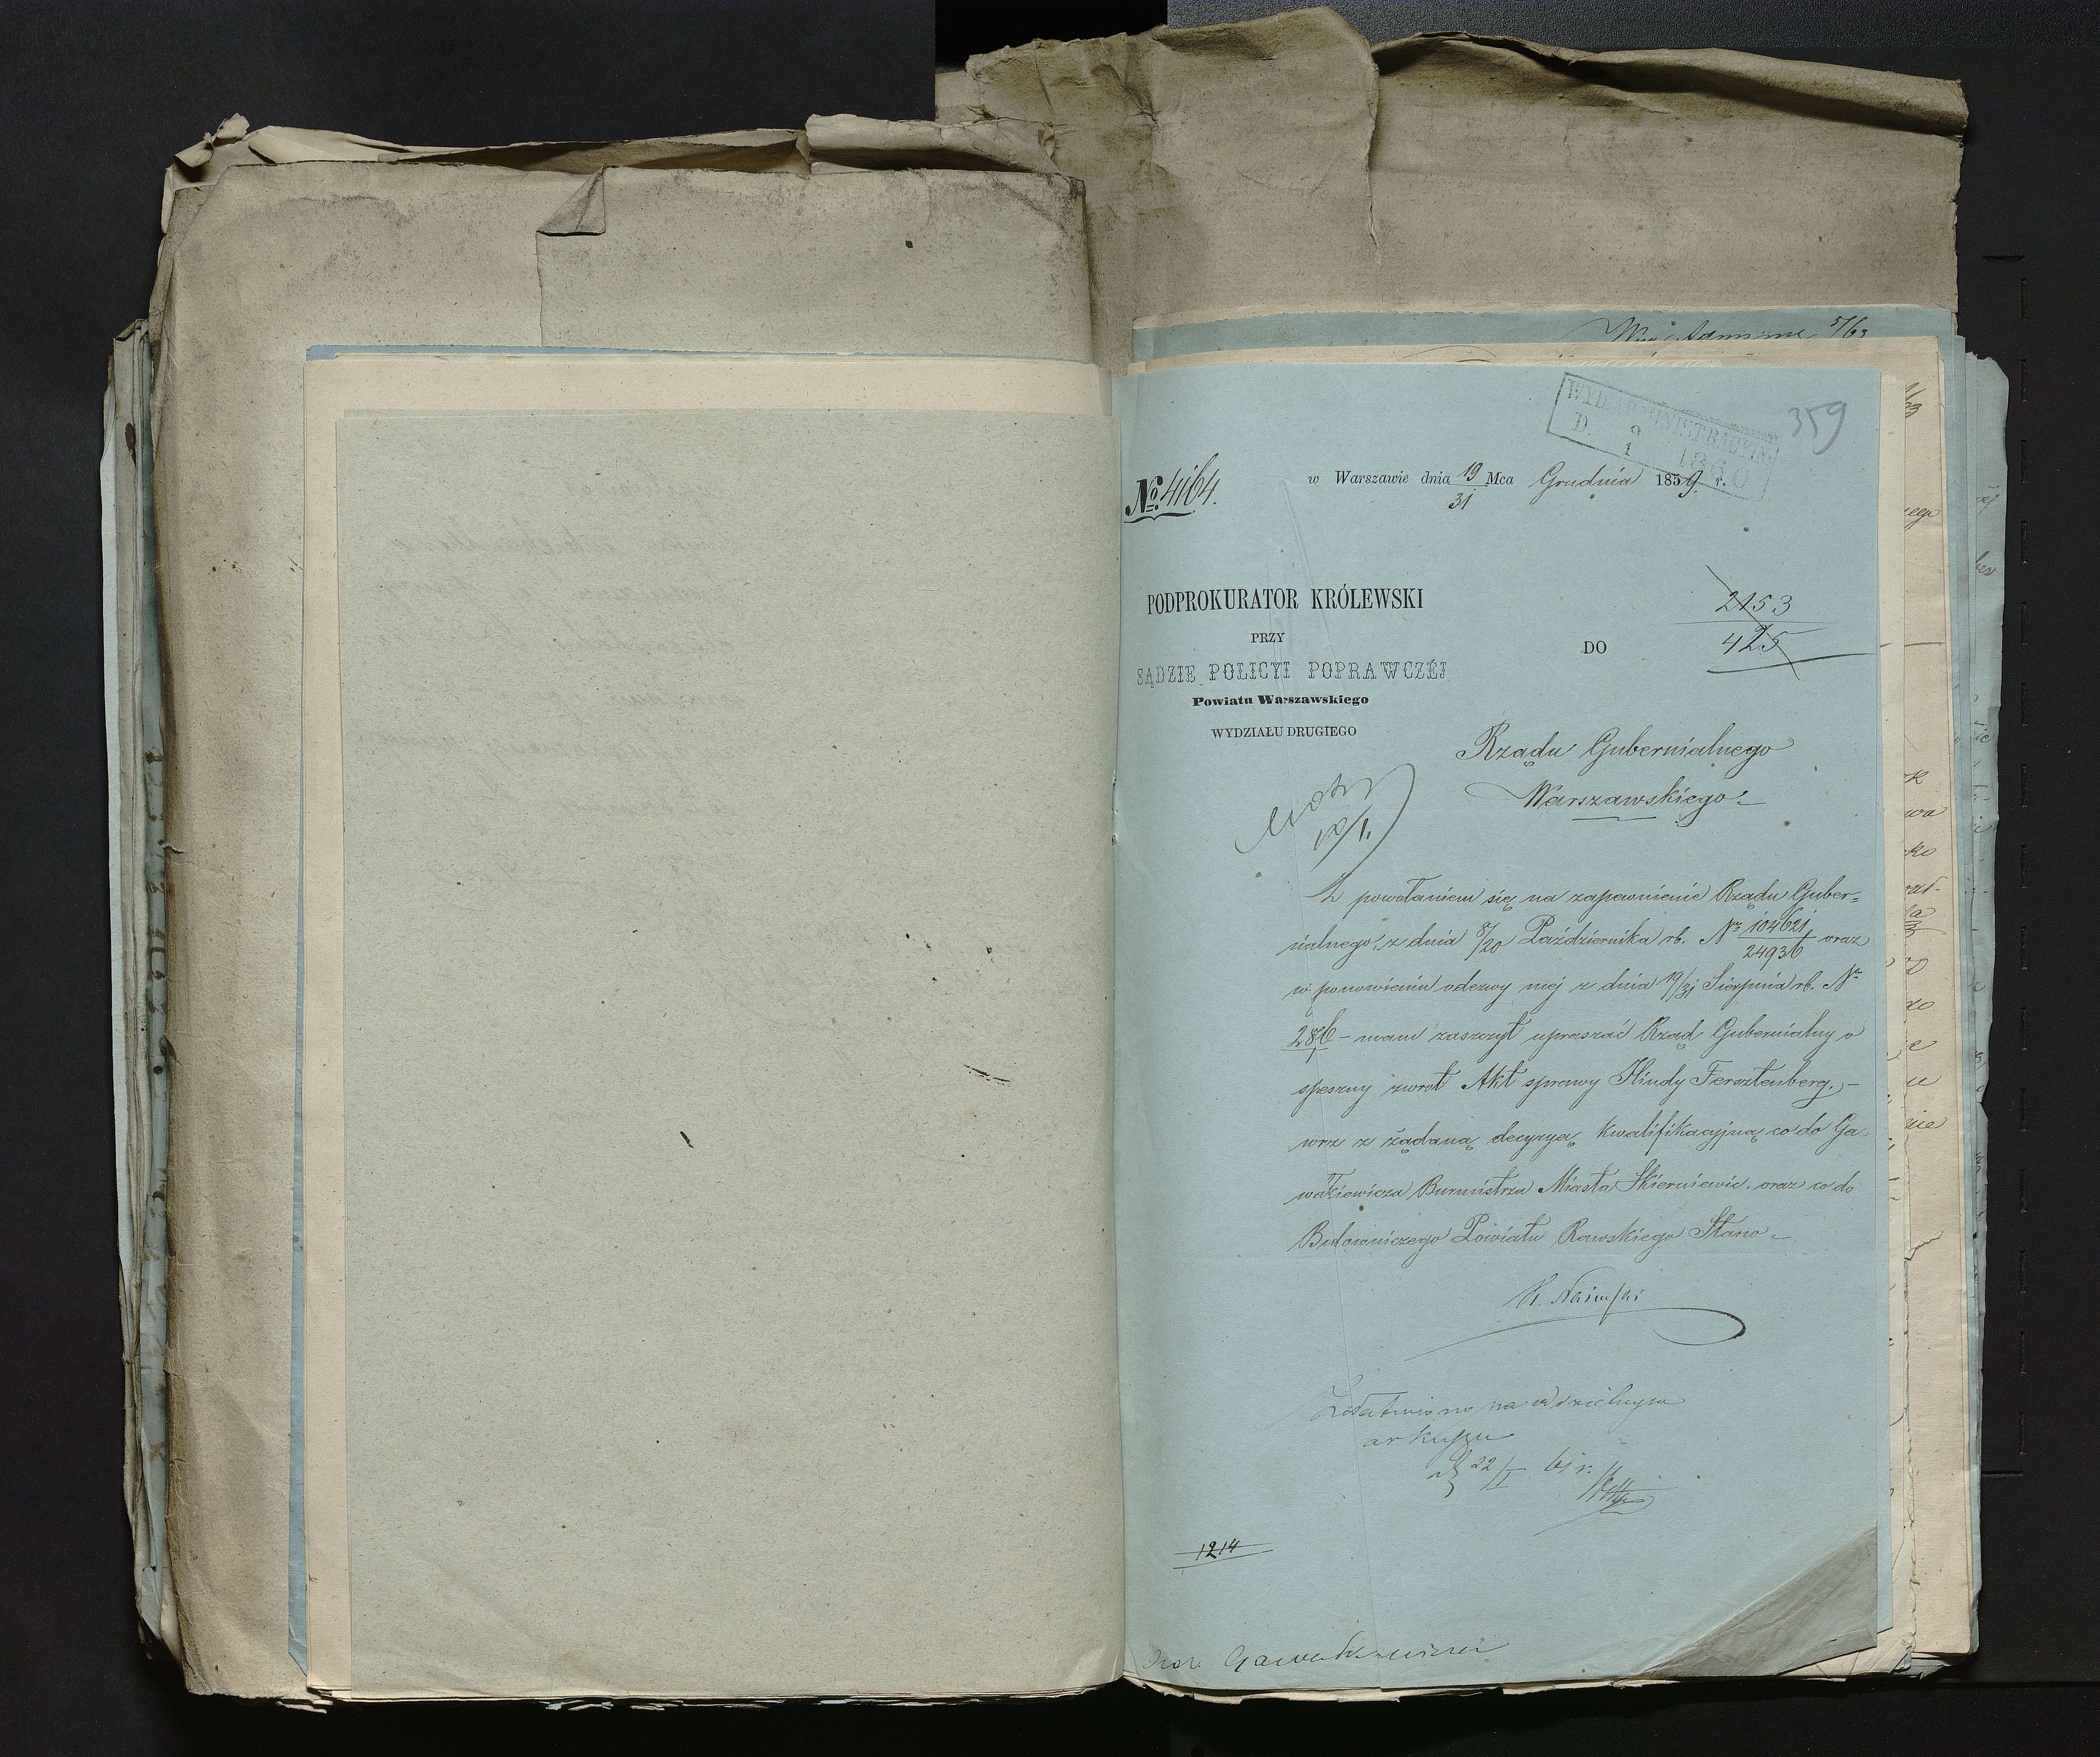 359
WYD. ADMINISTRACYJNY
D. 9/1 1860
w Warszawie dnia 19/31 Mca Grudnia 1859 r.
№ 4164.
PODPROKURATOR KRÓLEWSKI
PRZY
SĄDZIE POLICYI POPRAWCZÉJ
Powiatu Warszawskiego
WYDZIAŁU DRUGIEGO
DO
2153
425
Rządu Gubernialnego
Warszawskiego
Z powołaniem się na zapewnienie Rządu Guber=
nialnego, z dnia 8/20 Października rb. Nr 104621/24936 oraz
w ponowieniu odezwy mej z dnia 19/31 Sierpnia rb. Nr
286 – mam zaszczyt upraszać Rząd Gubernialny o
speszny zwrot Akt sprawy Hindy Fersztenberg, –
wrz z żądaną decyzyą kwalifikacyjną co do Ga
wałkiewicza Burmistrza Miasta Skierniewic. oraz co do
Budowniczego Powiatu Rawskiego Stano –
Załatwiono na oddzielnym
arkuszu
22/I 61 r.
1214